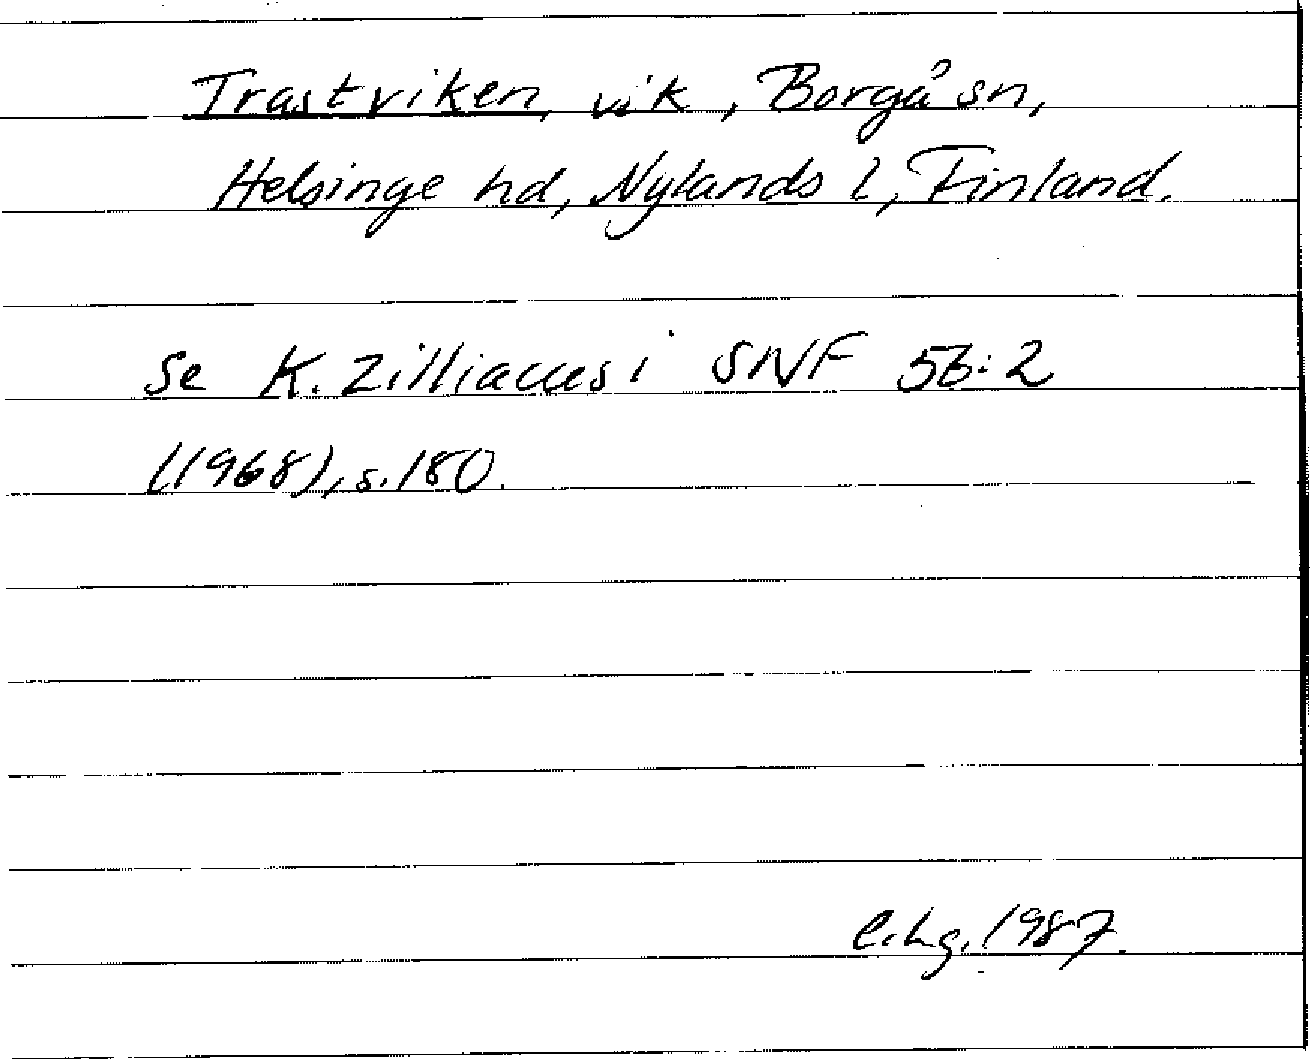 Trastviken, vik, Borgå sn,
Helsinge hd, Nylands l, Finland.
Se K. Zilliacus i SNF 56:2
(1968), s. 180.
1987.